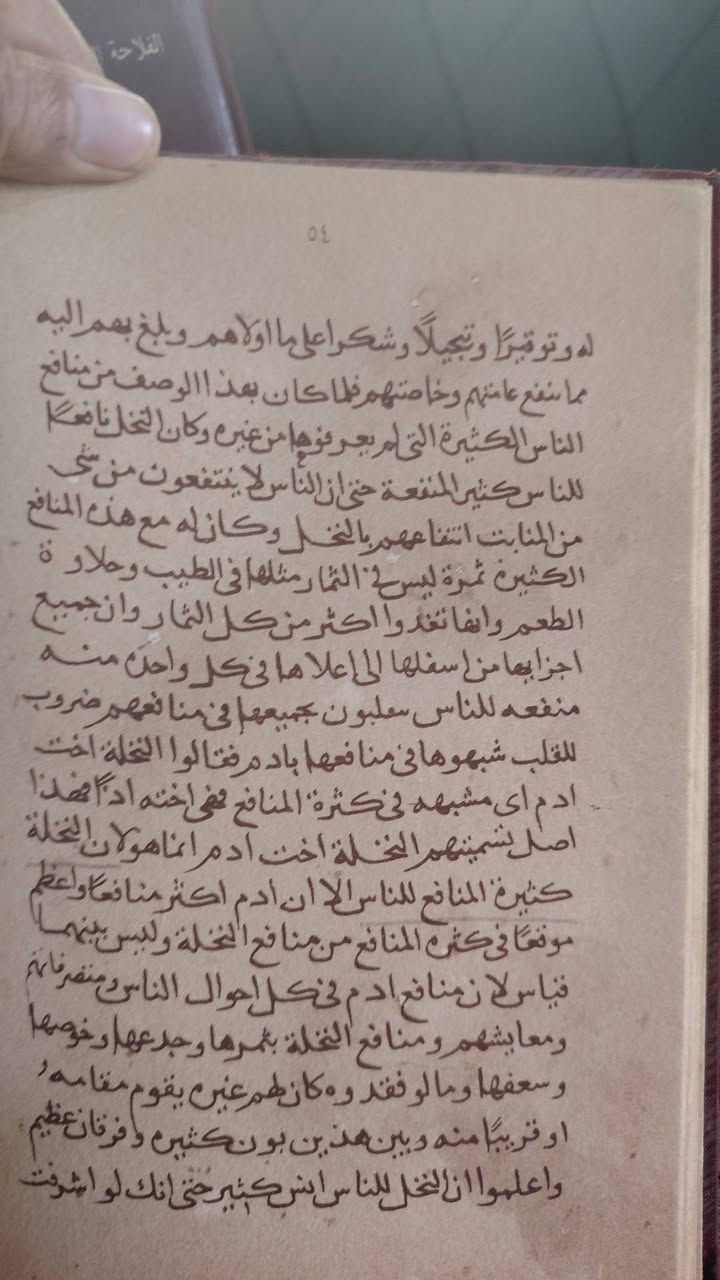 الفلاحة
٥٤
له وتوقيرًا وتبجيلًا وشكرا على ما اولاهم وبلغ بهم اليه
مما ينفع عامتهم وخاصتهم فلما كان بهذا الوصف من منافع
الناس الكثيرة التى لم يعرفوها من غيره وكان النخل نافعًا
للناس كثير المنفعة حتى ان الناس لا ينتفعون من شى
من المنابت انتفاعهم بالنخل وكان له مع هذه المنافع
الكثيرة ثمرة ليس فى الثمار مثلها فى الطيب وحلاوة
الطعم وانها تغدوا اكثر من كل الثمار وان جميع
اجزايها من اسفلها الى اعلاها فى كل واحده منه
منفعه للناس بجميعها فى منافعهم ضروب
للقلب شبهوها فى منافعها بادم فقالوا النخلة اخت
ادم اى مشبهه فى كثرة المنافع فهى اخته اذًا فهذا
اصل تسميتهم النخلة اخت ادم انما هو لان النخلة
كثيرة المنافع للناس الا ان ادم اكثر منافعًا واعظم
موقعًا فى كثره المنافع من منافع النخلة وليس بينهما
قياس لان منافع ادم فى كل احوال الناس ومتصرفاتهم
ومعايشهم ومنافع النخلة بثمرها وجدعها وخوصها
وسعفها وما لو فقدوه كان لهم غيره يقوم مقامه
او قريبًا منه وبين هذين بون كثيره وفرقان عظيم
واعلموا ان النخل للناس انس كثير حتى انك لو اشرفت